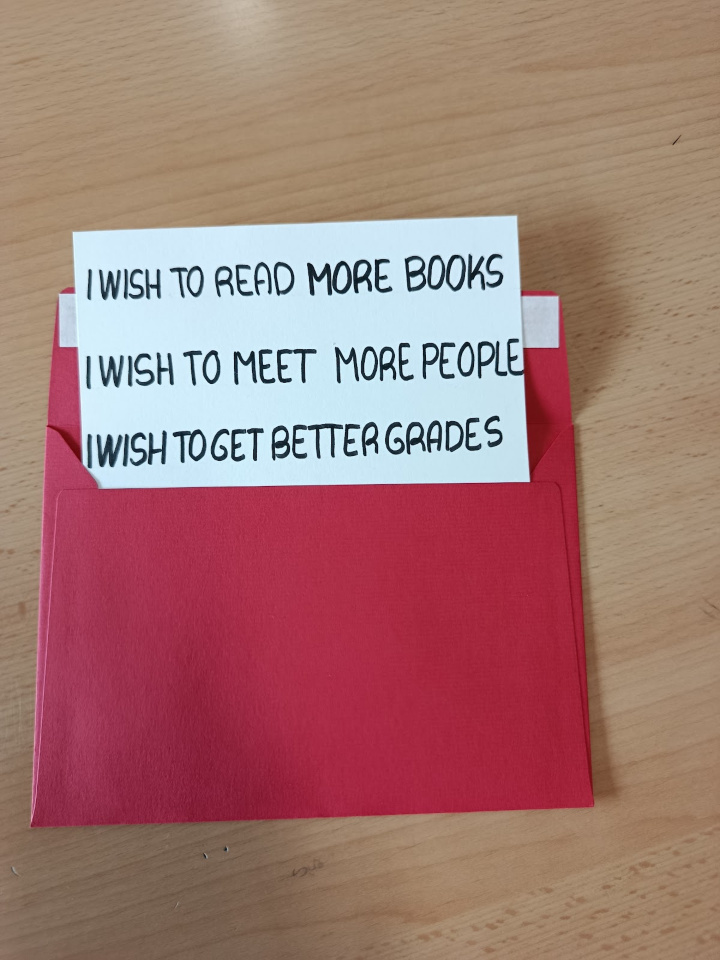 I WISH TO READ MORE BOOKS
I WISH TO MEET MORE PEOPLE
I WISH TO GET BETTER GRADES